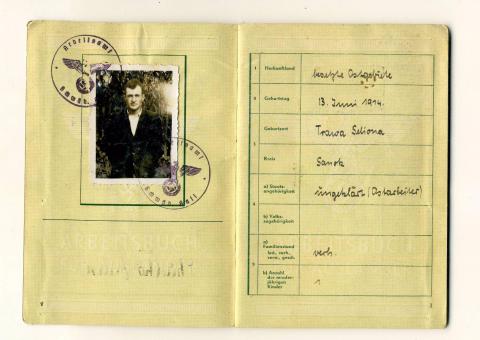 Arbeitsamt
Schwäb. Hall
Arbeitsamt
Schwäb. Hall
ARBEITSBUCH
2
1 Herkunftsland besetzte Ostgebiete
2 Geburtstag 13. Juni 1914.
Geburtsort Trawa Seliona
Kreis Sanok
a) Staats-
angehörigkeit ungeklärt (Ostarbeiter)
b) Volks-
zugehörigkeit
a)
Familienstand
led., verh.,
verw., gesch. verh.
b) Anzahl
der minder-
jährigen
Kinder 1
ARBEITSBUCH
3